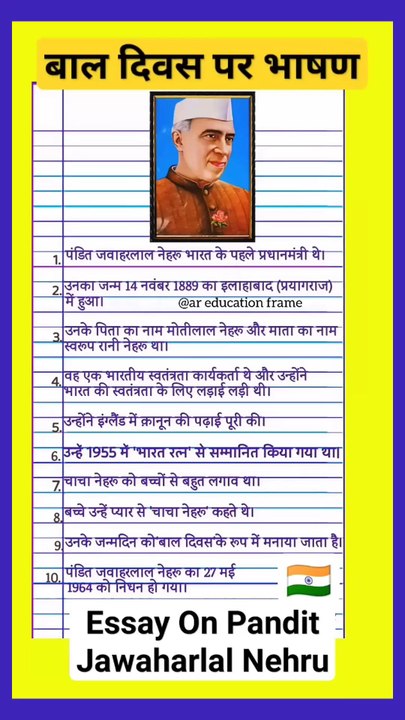 बाल दिवस पर भाषण
1. पंडित जवाहरलाल नेहरू भारत के पहले प्रधानमंत्री थे।
2. उनका जन्म 14 नवंबर 1889 का इलाहाबाद (प्रयागराज)
में हुआ।
@ar education frame
3. उनके पिता का नाम मोतीलाल नेहरू और माता का नाम
स्वरूप रानी नेहरू था।
4. वह एक भारतीय स्वतंत्रता कार्यकर्ता थे और उन्होंने
भारत की स्वतंत्रता के लिए लड़ाई लड़ी थी।
5. उन्होंने इंग्लैंड में क़ानून की पढ़ाई पूरी की।
6. उन्हें 1955 में 'भारत रत्न' से सम्मानित किया गया था।
7. चाचा नेहरू को बच्चों से बहुत लगाव था।
8. बच्चे उन्हें प्यार से 'चाचा नेहरू' कहते थे।
9. उनके जन्मदिन को'बाल दिवस'के रूप में मनाया जाता है।
10. पंडित जवाहरलाल नेहरू का 27 मई
1964 को निधन हो गया।
Essay On Pandit
Jawaharlal Nehru